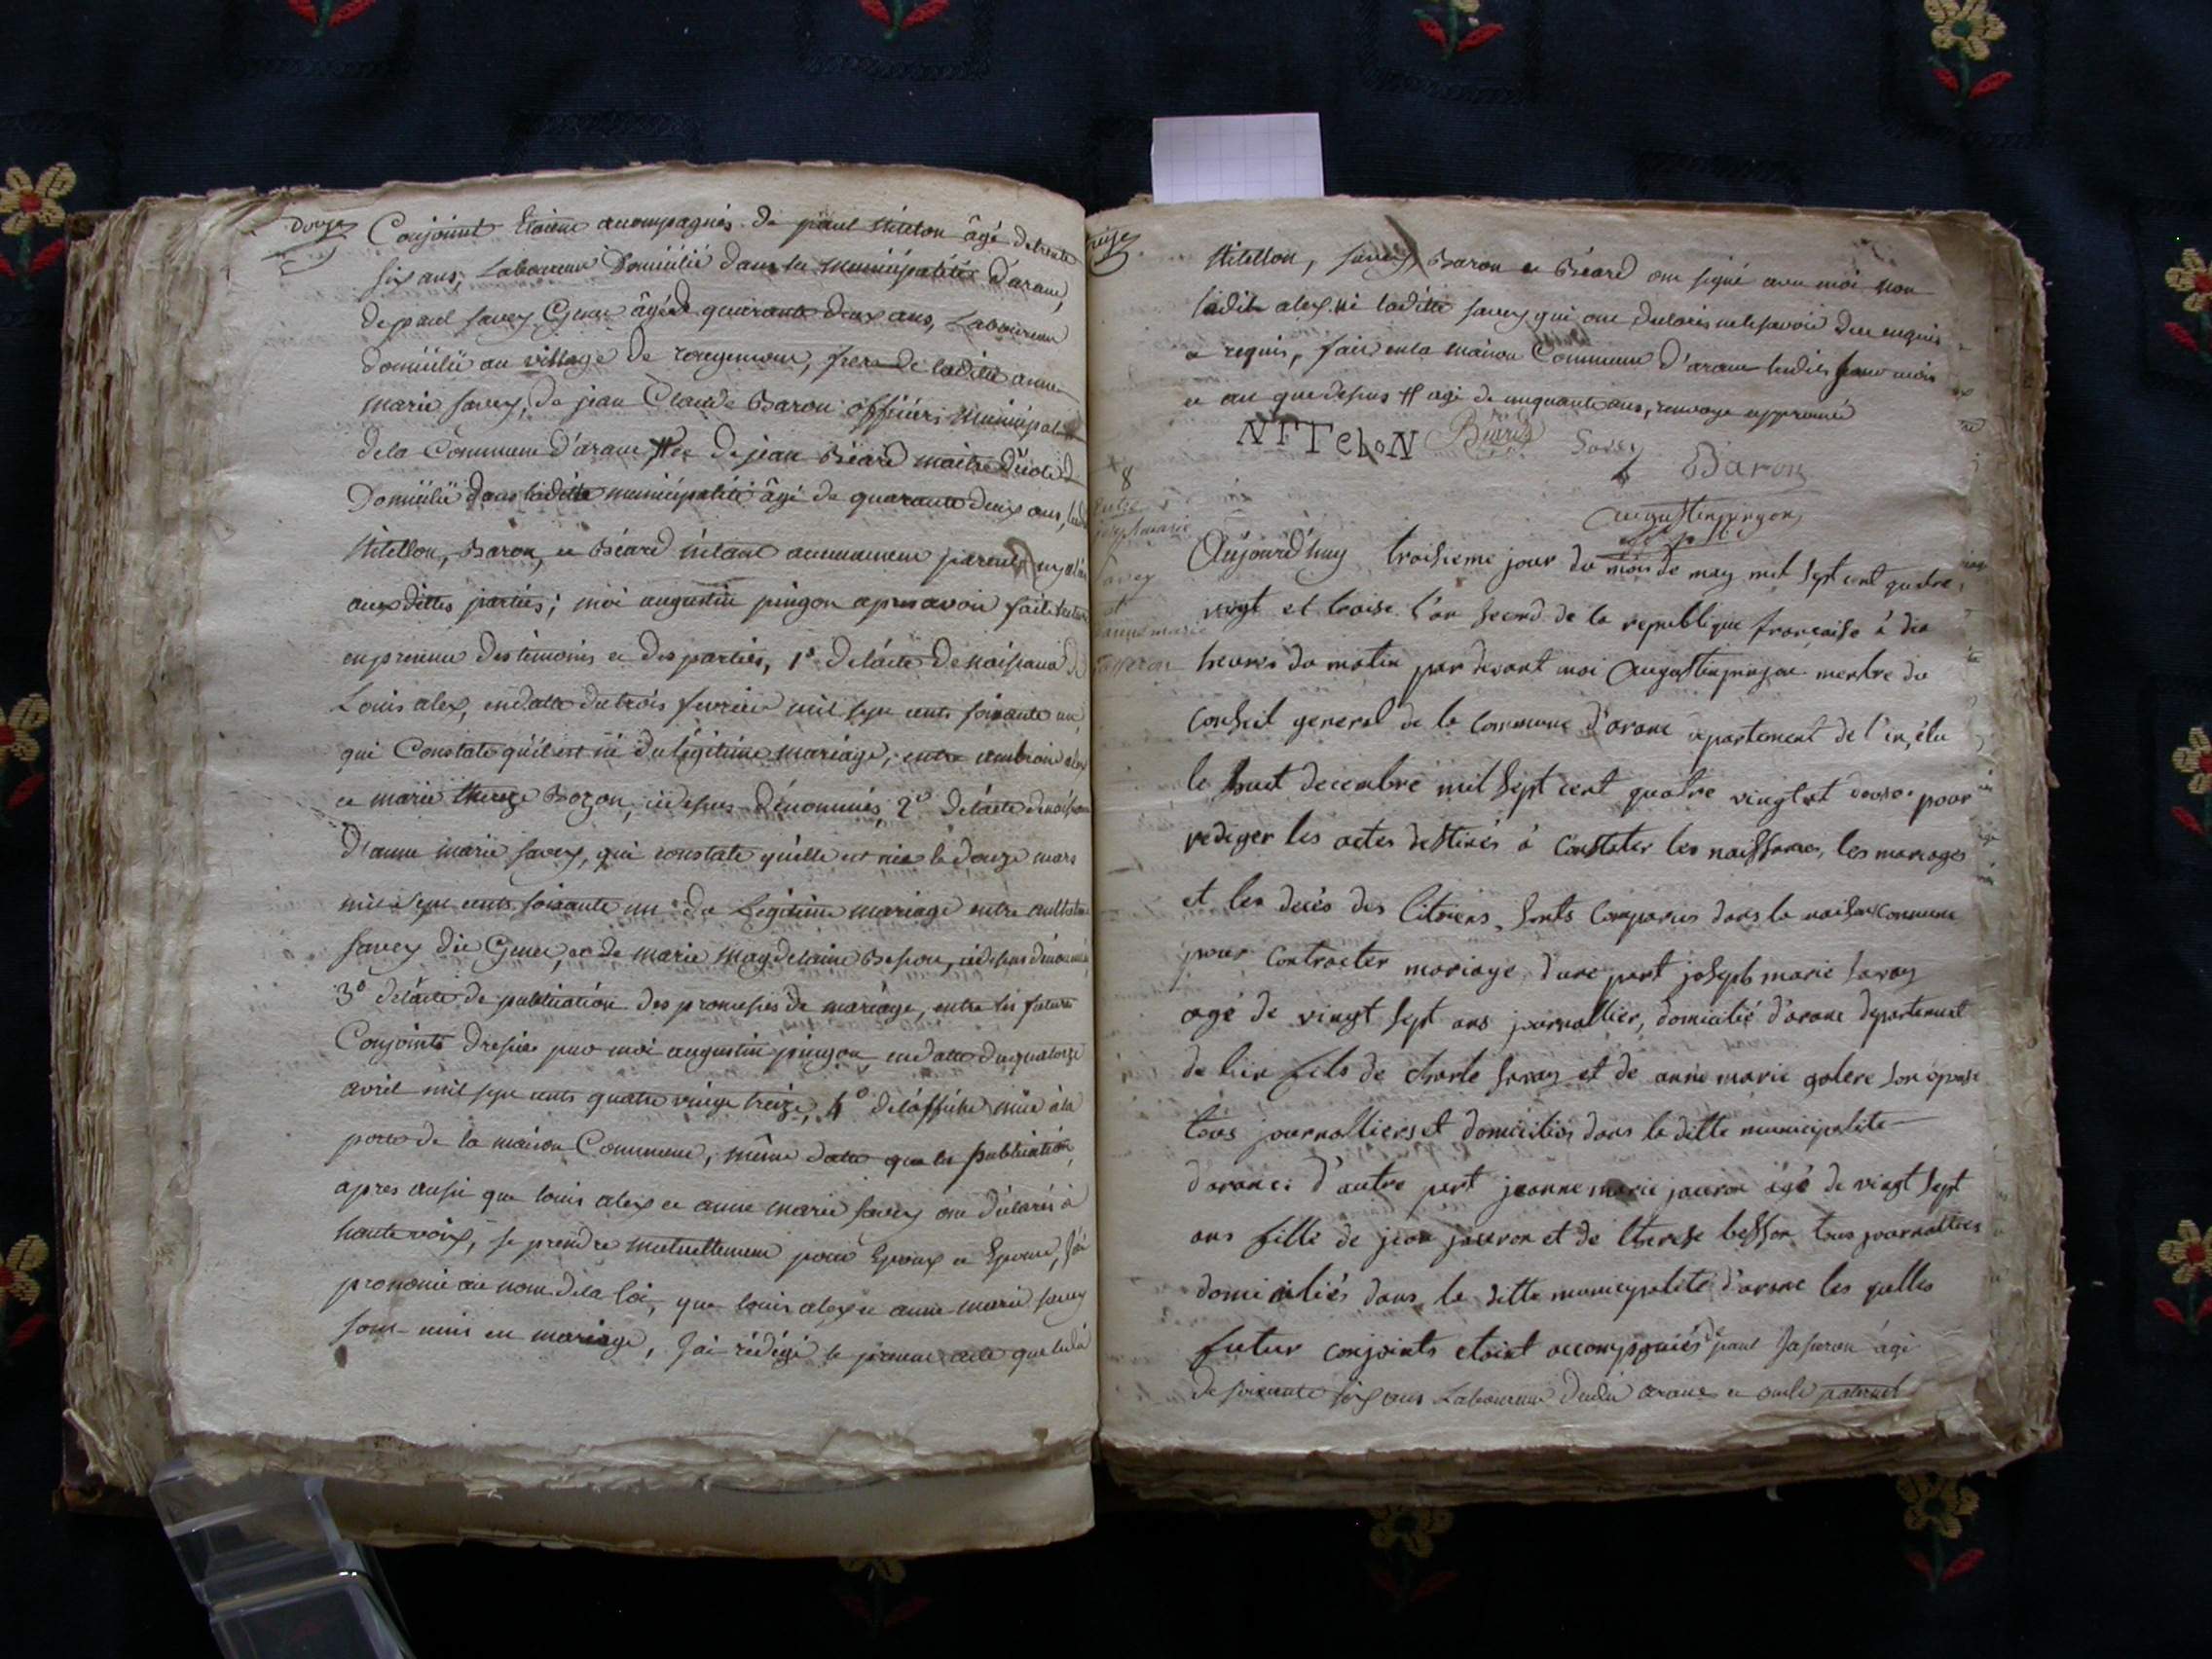 Douze
Conjoints Etoient accompagnés de paul Nitelon âgé de trente
six ans, Laboureur Domicilié dans la municipalité d'arane,
de paul savey Genu âgé de quarante deux ans, Laboureur
domicilié au village de rougemont, frere de ladite anne
marie savey, de jean Claude Baron officier municipal
de la Commune d'arane # et de jean Béard maitre d'école
Domicilié dans ladite municipalité âgé de quarante deux ans,
Nitellon, Baron, et Béard n'étant aucunement parents
aux dittes parties; moi augustin pingon apres avoir fait lecture
en presence des temoins et des parties, 1º de l'acte de naissance de
Louis alex, en datte du trois fevrier mil sept cents soixante un
qui Constate qu'il est né du légitime mariage, entre ambroise alex
et marie thereze Bozon, cidessus dénommés, 2º de l'acte de naissance
d'anne marie savey, qui constate qu'elle est née le douze mars
mil sept cents soixante un du Legitime mariage entre
savey dit Genu, et de marie magdelaine Besson, cidessus dénommés
3º de l'acte de publication des promesses de mariage, entre les futurs
Conjoints dressée par moi augustin pingon en datte du quatorze
avril mil sept cents quatre vingt treize, 4º de l'affiche mise à la
porte de la maison Commune, même datte que la publication,
apres aussi que louis alex et anne marie savey ont déclaré à
haute voix, se prendre mutuellement pour Epoux et Epouse, j'ai
prononcé au nom de la loi, que louis alex et anne marie savey
sont unis en mariage, j'ai rédigé le present acte que ledit
treize
Nitellon, savey, Baron et Béard ont signé avec moi non
ledit alex ni ladite savey qui ont déclarés ne le savoir de ce enquis
et requis, fait en la maison Commune d'arane lesdits jour mois
et an que dessus # agé de cinquante ans, renvoye approuvé
NITELON Béard Savey Baron
augustin pingon
8
entre
joseph marie
Savey
et
jeanne marie
jaceron
Aujourd'huy troisieme jour du mois de may mil sept cent quatre
vingt et treise l'an second de la republique francaise à dix
heures du matin par devant moi Augustin pingon membre du
conseil general de la Commune d'arane departement de l'in, élu
le huit decembre mil sept cent quatre vingt et douse pour
rediger les actes destinés à Constater les naissances, les mariages
et les decés des Citoiens, sonts Comparus dans la maison Commune
pour Contracter mariage, d'une part joseph marie Savey
agé de vingt sept ans journallier, domicilié d'arane departement
de l'ein fils de charle Savey et de anne marie galere son épouse
tous journalliers et domiciliés dans la ditte municipalite
d'arane: d'autre part jeanne marie jaceron agé de vingt sept
ans fille de jean jaceron et de therese besson tous journalliers
domiciliés dans la ditte municipalité d'arane les quelles
futur conjoints etoint accompagniés de paul Jaseron âgé
de soixante six ans Laboureur dudit arane et oncle paternel